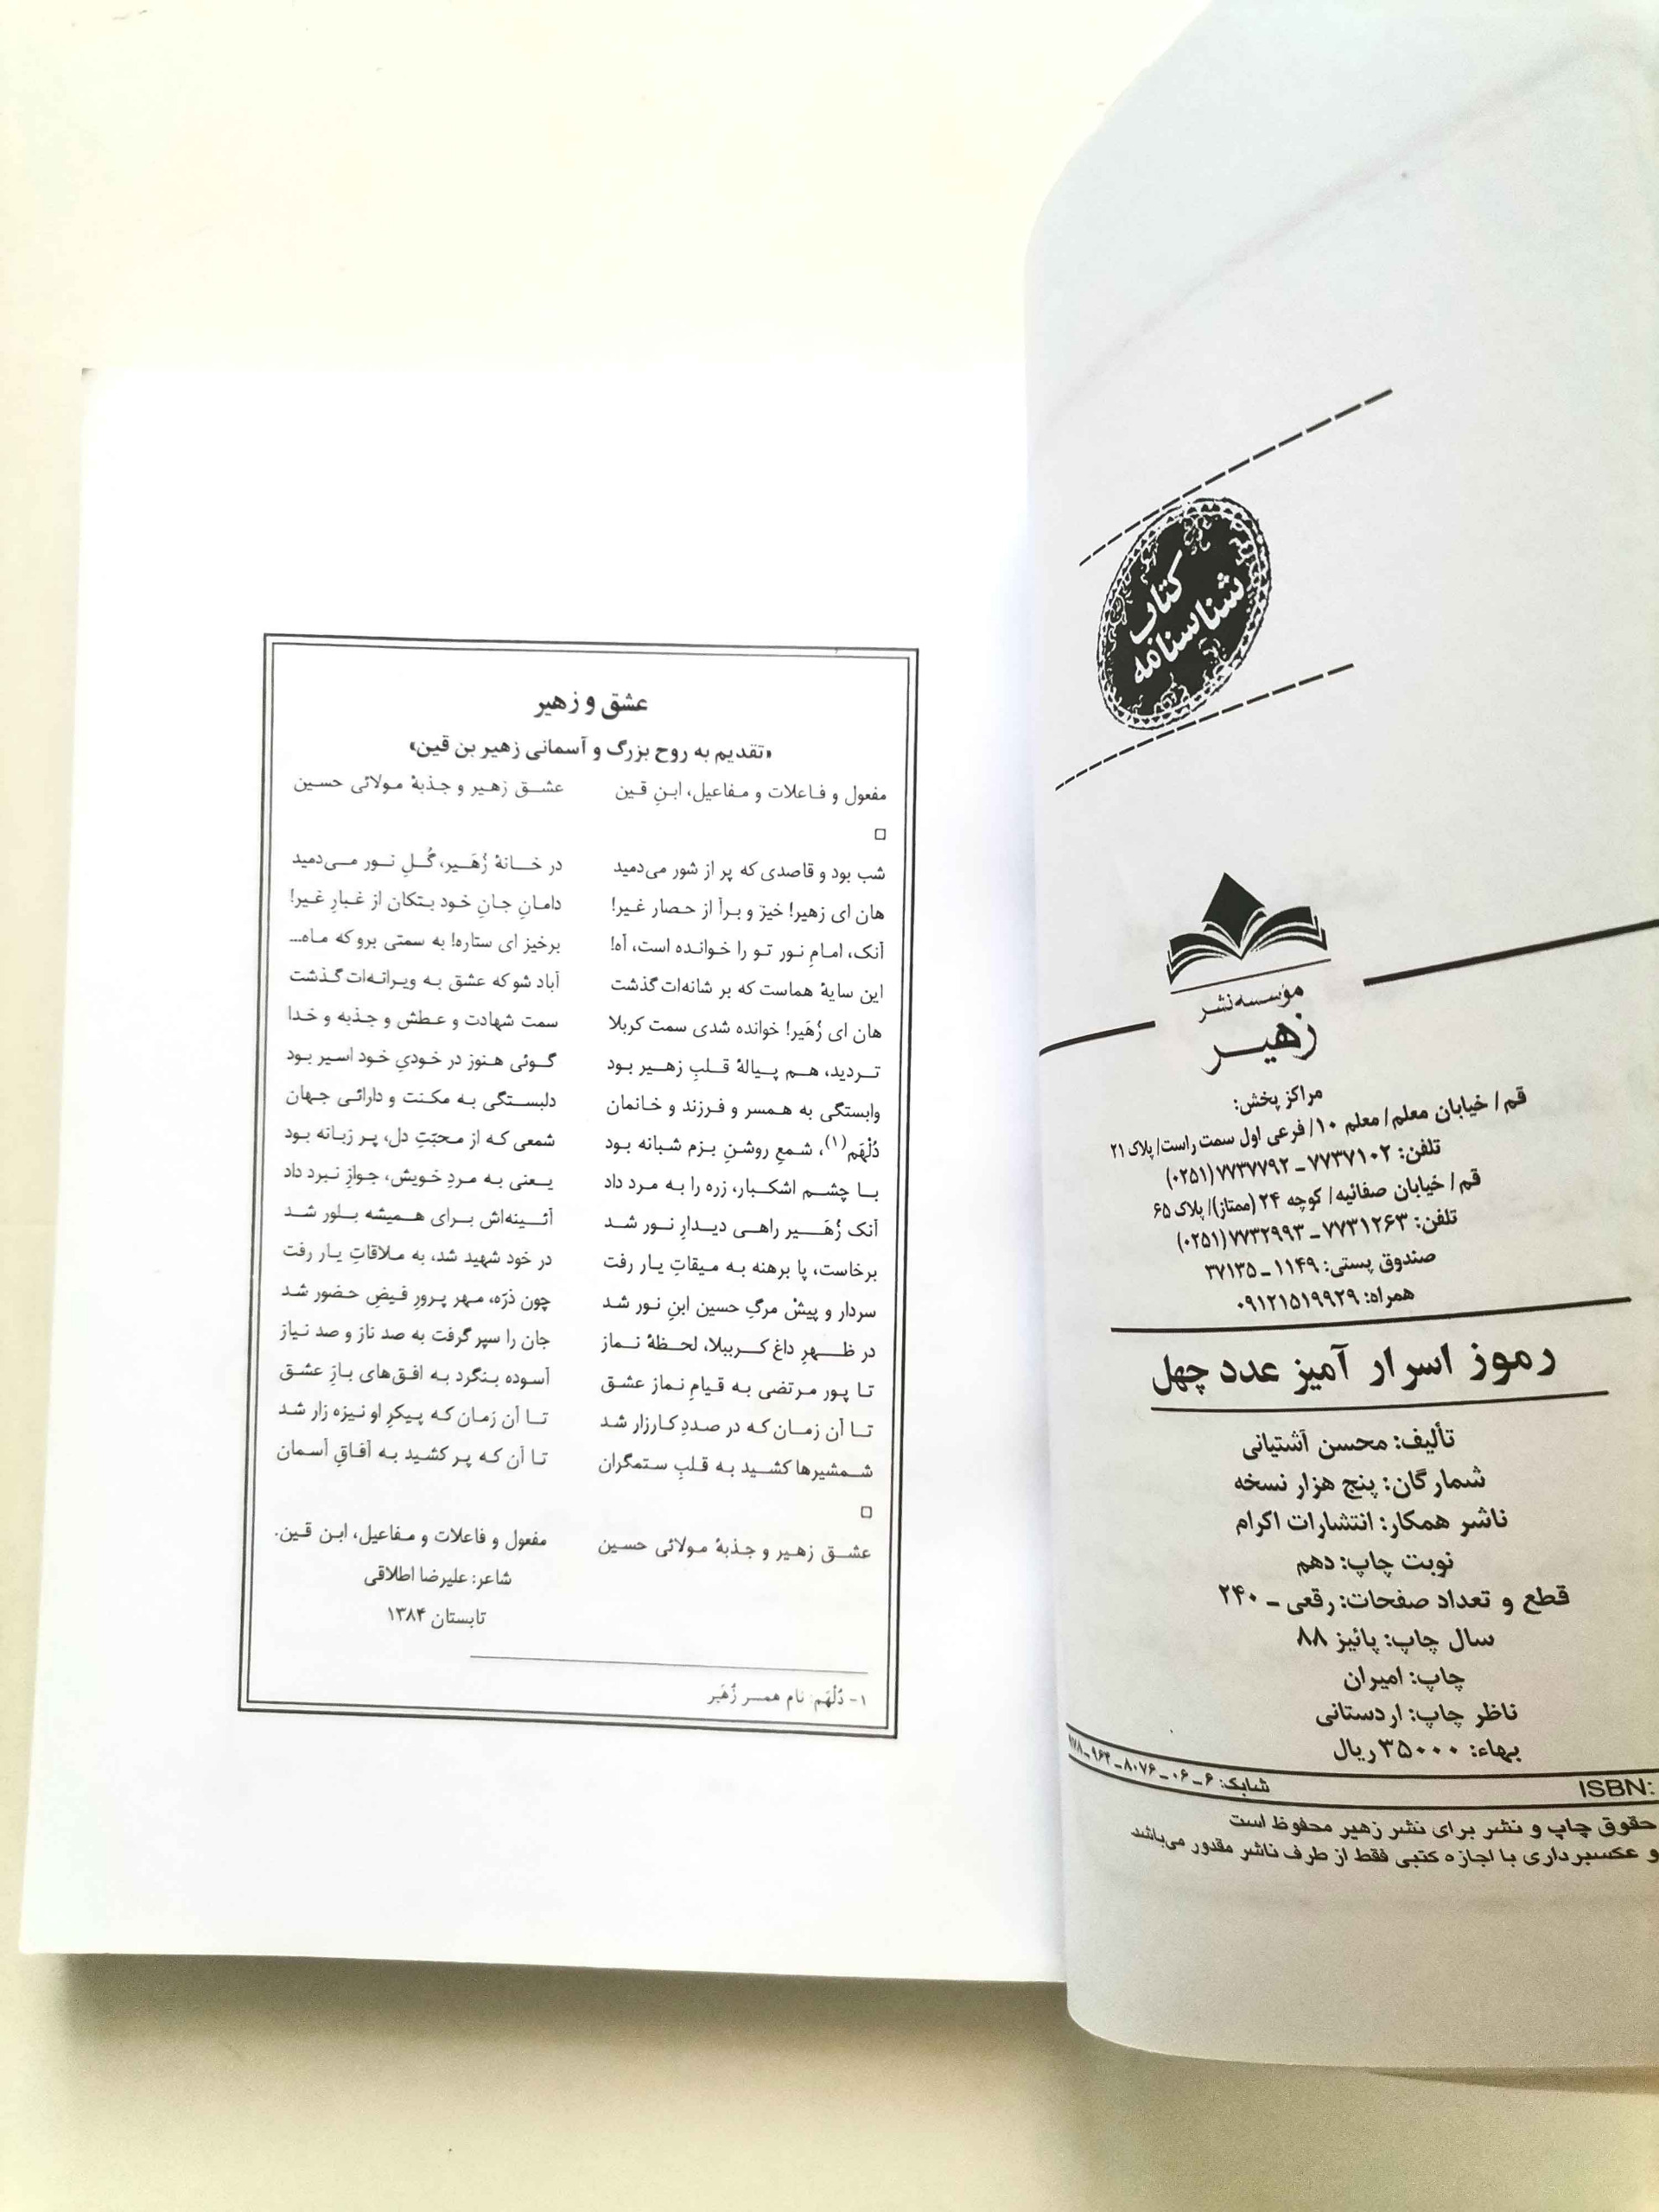 شناسنامه
کتاب
مؤسسه نشر
زهیر
مراکز پخش:
قم/ خیابان معلم/ معلم ۱۰/ فرعی اول سمت راست/ پلاک ۲۱
تلفن: ۷۷۳۷۱۰۲ ـ ۷۷۳۷۷۹۲ (۰۲۵۱)
قم/ خیابان صفائیه/ کوچه ۲۴ (ممتاز)/ پلاک ۶۵
تلفن: ۷۷۳۱۲۶۳ ـ ۷۷۳۲۹۹۳ (۰۲۵۱)
صندوق پستی: ۱۱۴۹ ـ ۳۷۱۳۵
همراه: ۰۹۱۲۱۵۱۹۹۲۹
رموز اسرار آمیز عدد چهل
تألیف: محسن آشتیانی
شمارگان: پنج هزار نسخه
ناشر همکار: انتشارات اکرام
نوبت چاپ: دهم
قطع و تعداد صفحات: رقعی ـ ۲۴۰
سال چاپ: پائیز ۸۸
چاپ: امیران
ناظر چاپ: اردستانی
بهاء: ۳۵۰۰۰ ریال
ISBN: شابک: ۶ ـ ۰۶ ـ ۸۰۷۶ ـ ۹۶۴ ـ ۹۷۸
حقوق چاپ و نشر برای نشر زهیر محفوظ است
و عکسبرداری با اجازه کتبی فقط از طرف ناشر مقدور می‌باشد
عشق و زهیر
«تقدیم به روح بزرگ و آسمانی زهیر بن قین»
مفعول و فاعلات و مفاعیل، ابنِ قین عشق زهیر و جذبهٔ مولائی حسین
□
شب بود و قاصدی که پر از شور می‌دمید در خانهٔ زُهَیر، گُلِ نور می‌دمید
هان ای زهیر! خیز و برآ از حصار غیر! دامانِ جانِ خود بتکان از غبارِ غیر!
آنک، امامِ نور تو را خوانده است، آه! برخیز ای ستاره! به سمتی برو که ماه...
این سایهٔ هماست که بر شانه‌ات گذشت آباد شو که عشق به ویرانه‌ات گذشت
هان ای زُهَیر! خوانده شدی سمت کربلا سمت شهادت و عطش و جذبه و خدا
تردید، هم پیالهٔ قلبِ زهیر بود گوئی هنوز در خودیِ خود اسیر بود
وابستگی به همسر و فرزند و خانمان دلبستگی به مکنت و دارائی جهان
دُلْهَم(۱)، شمعِ روشنِ بزم شبانه بود شمعی که از محبّتِ دل، پر زبانه بود
با چشم اشکبار، زره را به مرد داد یعنی به مردِ خویش، جوازِ نبرد داد
آنک زُهَیر راهی دیدارِ نور شد آئینه‌اش برای همیشه بلور شد
برخاست، پا برهنه به میقاتِ یار رفت در خود شهید شد، به ملاقاتِ یار رفت
سردار و پیشْ مرگِ حسین ابنِ نور شد چون ذرّه، مهر پرورِ فیضِ حضور شد
در ظهرِ داغ کرببلا، لحظهٔ نماز جان را سپر گرفت به صد ناز و صد نیاز
تا پور مرتضی به قیامِ نماز عشق آسوده بنگرد به افق‌های بازِ عشق
تا آن زمان که در صددِ کارزار شد تا آن زمان که پیکرِ او نیزه زار شد
شمشیرها کشید به قلبِ ستمگران تا آن که پر کشید به آفاقِ آسمان
□
عشق زهیر و جذبهٔ مولائی حسین مفعول و فاعلات و مفاعیل، ابن قین.
شاعر: علیرضا اطلاقی
تابستان ۱۳۸۴
۱- دُلْهَم: نام همسر زُهَیر